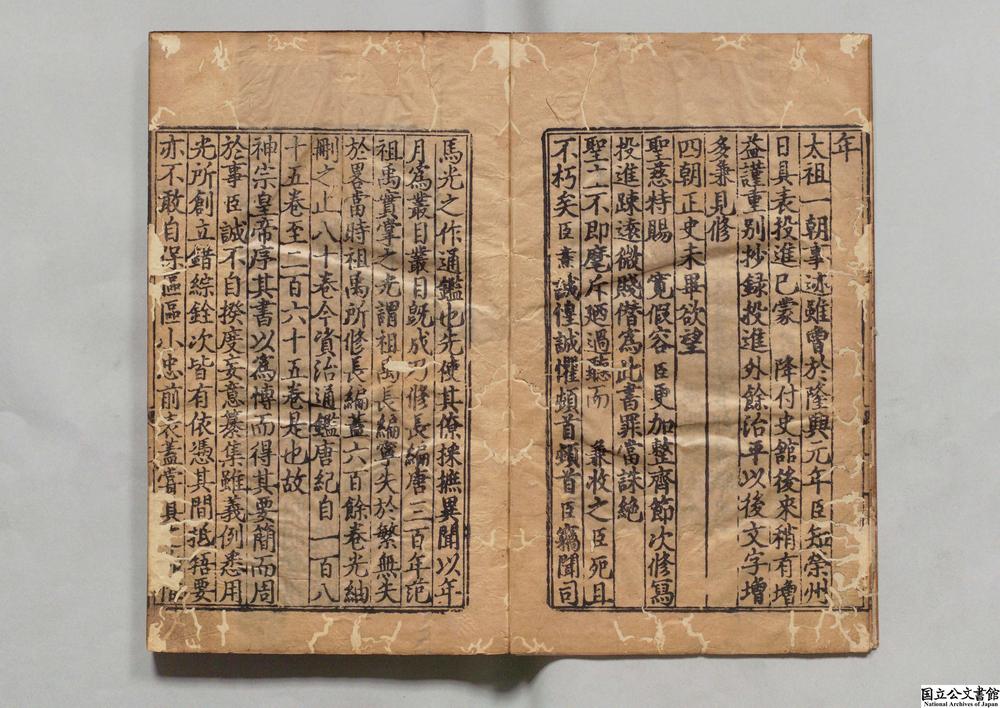 年
太祖一朝事迹雖曽於隆興元年臣知榮州
日具表投進已蒙　降付史舘後來稍有增
益謹重别抄録投進外餘治平以後文字增
多兼見修
四朝正史未畢欲望
聖慈特賜　寛假容臣更加整齊節次修寫
投進踈逺微賤僣為此書罪當誅絶
聖上不即麾斥廼過聽而　兼收之臣死且
不朽矣臣燾誠惶誠懼頓首頓首臣竊聞司
馬光之作通鑑也先使其僚採摭異聞以年
月為叢目叢目旣成乃修長編唐三百年范
祖禹實掌之光謂祖禹長編寧失於繁無失
於畧當時祖禹所修長編蓋六百餘卷光紬
刪之止八十卷今資治通鑑唐紀自一百八
十五卷至二百六十五卷是也故
神宗皇帝序其書以為博而得其要簡而周
於事臣誠不自揆度妄意纂集雖義例悉用
光所創立錯綜銓次皆有依憑其間抵捂要
亦不敢自保區區小忠前表蓋嘗具
国立公文書館
National Archives of Japan